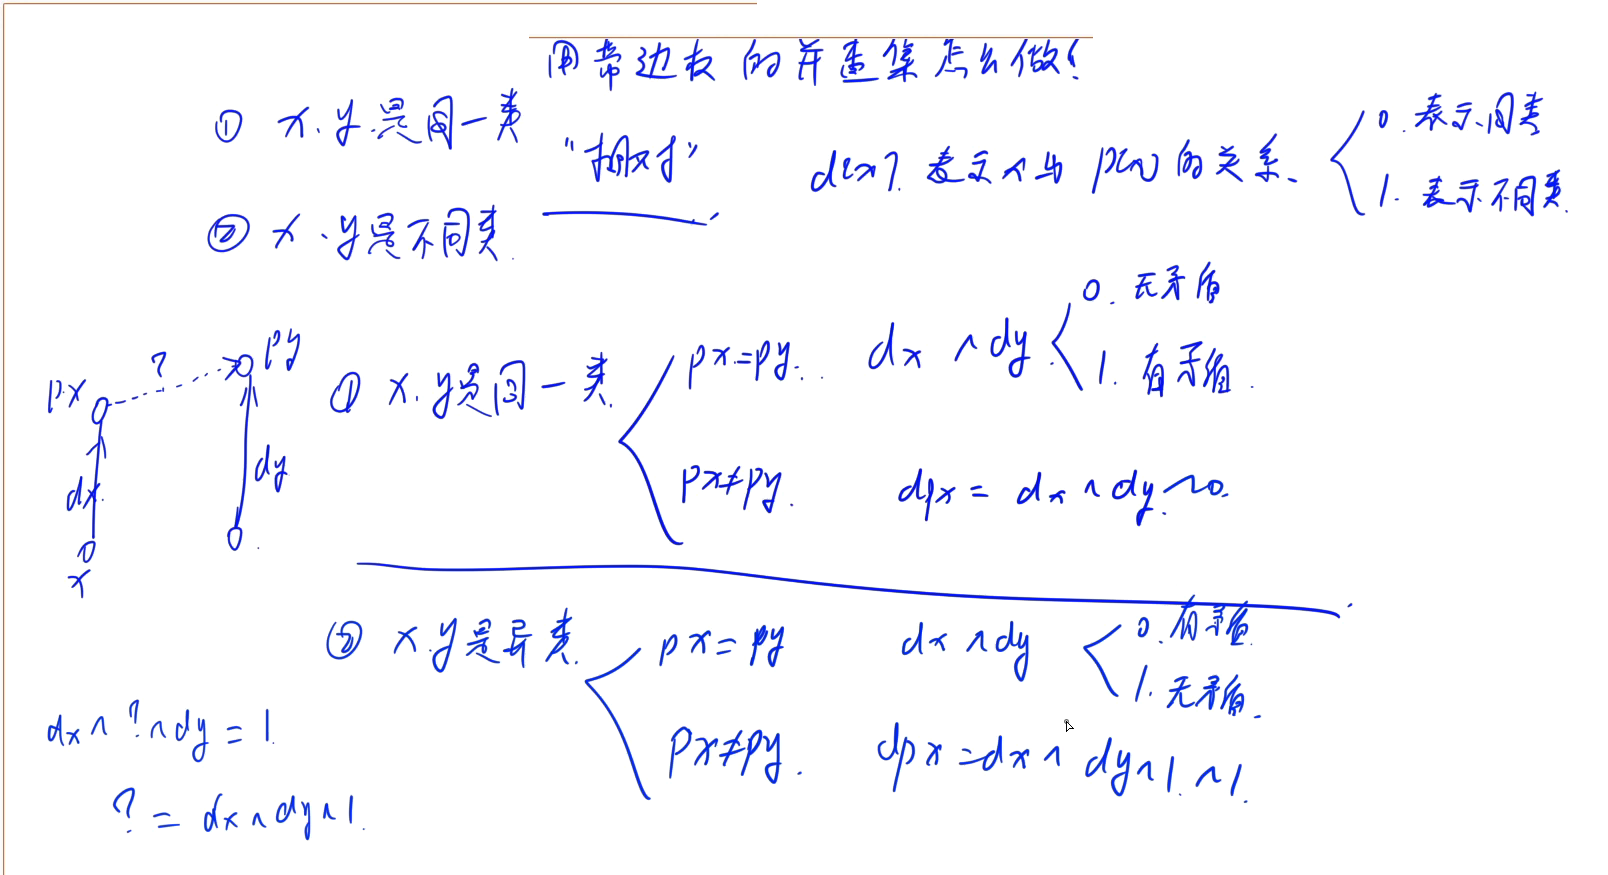 用带边权的并查集怎么做?
① x、y是同一类
“相对”
② x、y是不同类.
d[x]. 表示x与p[x]的关系、
0. 表示同类
1. 表示不同类.
px
?
py
dx
dy
x
① x、y是同一类.
px=py.
dx ^ dy
0. 无矛盾
1. 有矛盾.
px≠py.
dpx = dx ^ dy ^ 0.
② x、y是异类.
px = py
dx ^ dy
0. 有矛盾.
1. 无矛盾.
px≠py.
dpx = dx ^ dy ^ 1. ^ 1.
dx ^ ? ^ dy = 1.
? = dx ^ dy ^ 1.